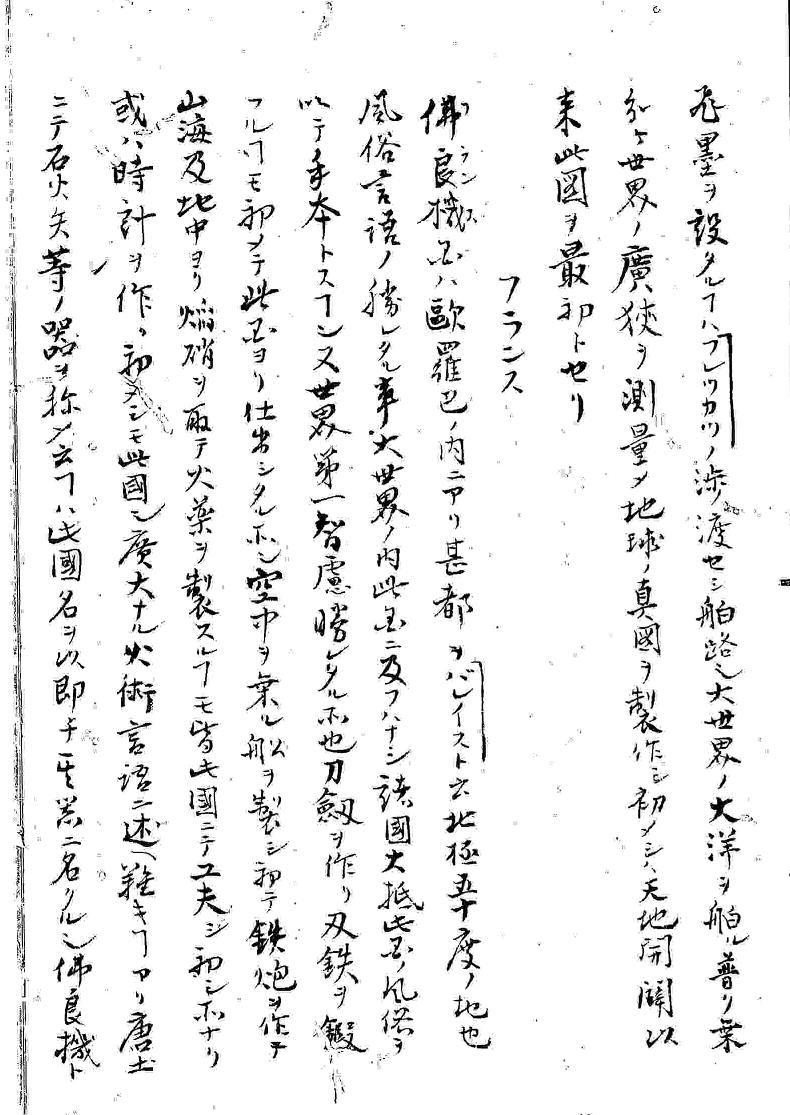 飛墨ヲ設タルヿハブレツカツノ渉渡セシ舶路ニ大世界ノ大洋ヲ舶ル普リ乗
ケ世界ノ廣狹ヲ測量〆地球ノ真図ヲ製作シ初メシハ天地開闢以
来此図ヲ最初トセリ
フランス
佛良機国ハ歐羅巴ノ内ニアリ其都ヲバレイスト云北極五十度ノ地也
フランス
風俗言語ノ勝レタル事大世界ノ内此国ニ及フハナシ諸國大抵此国ノ風俗ヲ
以テ手本トスヿ也又世界第一智慮勝レタル所也刀劔ヲ作リ刃鉄ヲ鍛
フルヿモ初メテ此国ヨリ仕出シタル所也空中ヲ乗ル船ヲ製シ初テ鉄炮ヲ作テ
山海及地中ヨリ焔硝ヲ取テ火薬ヲ製スルヿモ皆此國ニテ工夫シ初シ所ナリ
或ハ時計ヲ作リ初メシモ此國也廣大ナル火術言語ニ述ヘ難キヿアリ唐土
ニテ石火矢等ノ器ヲ称〆云フハ此國名ヲ以即チ其器ニ名タル也佛良機ト